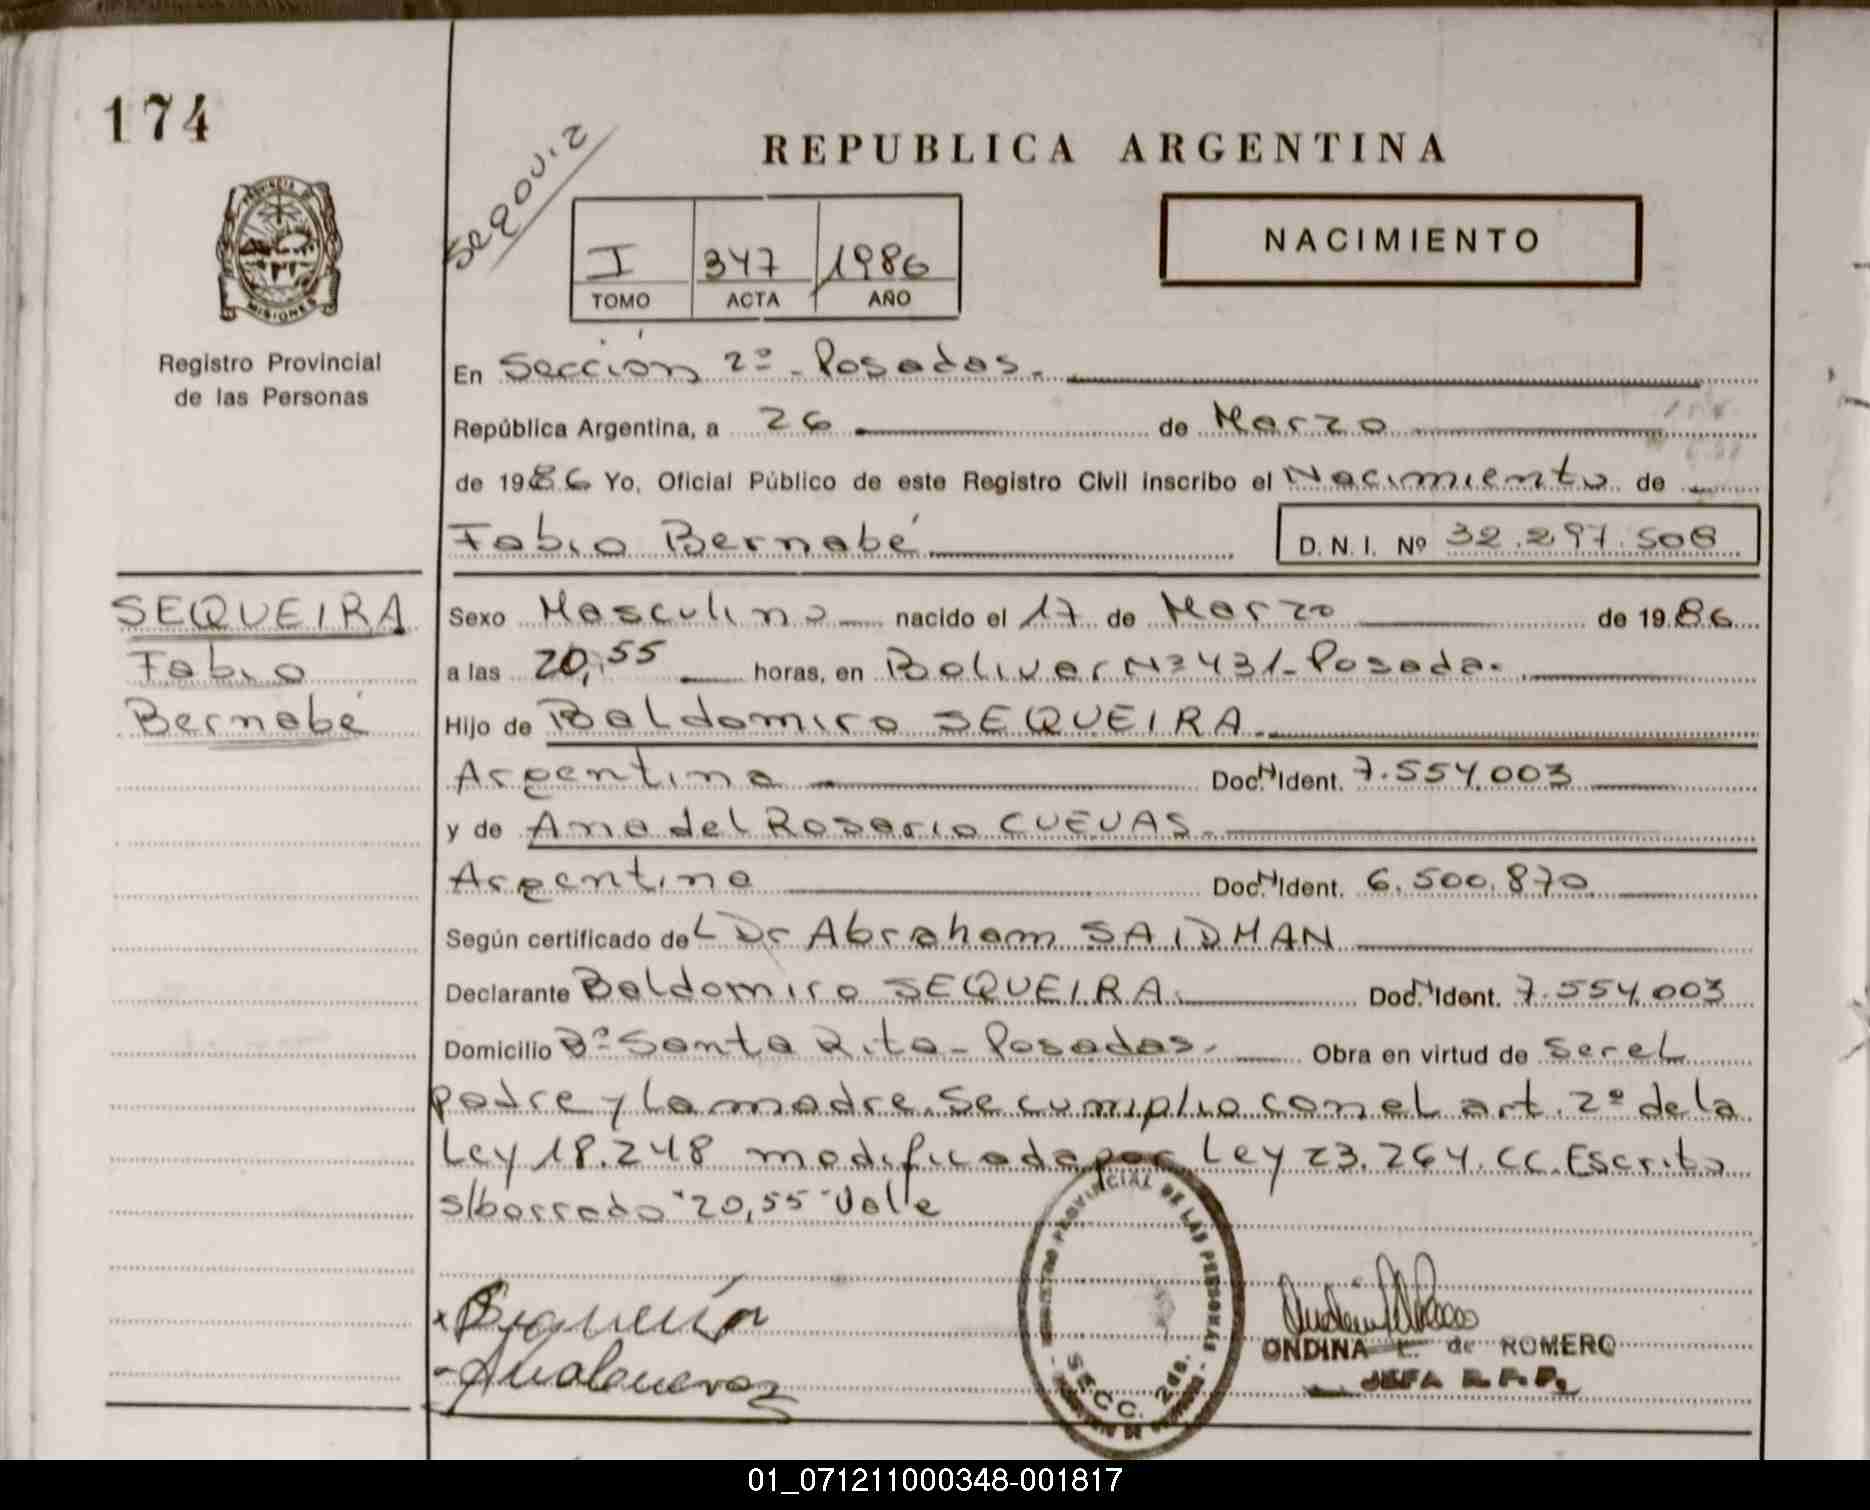 174
Segovia
REPUBLICA ARGENTINA
NACIMIENTO
I 347 1986
TOMO ACTA AÑO
PROVINCIA DE MISIONES
Registro Provincial
de las Personas
En Sección 2º - Posadas.
República Argentina, a 26 de Marzo
de 1986 Yo, Oficial Público de este Registro Civil inscribo el Nacimiento de
Fabio Bernabé D. N. I. Nº 32.297.508
SEQUEIRA
Fabio
Bernabé
Sexo Masculino nacido el 17 de Marzo de 1986
a las 20,55 horas, en Bolivar Nº 431 - Posadas.
Hijo de Baldomiro SEQUEIRA.
Argentina Doc. N Ident. 7.554.003
y de Ana del Rosario CUEVAS.
Argentina Doc. N Ident. 6.500.870
Según certificado del Dr Abraham SAIDMAN
Declarante Baldomiro SEQUEIRA. Doc. N Ident. 7.554.003
Domicilio Bº Santa Rita - Posadas. Obra en virtud de ser el
padre y la madre. Se cumplio con el art. 2º de la
Ley 18.248 modificada por Ley 23.264. CC. Escrito
s/borrado "20,55" Vale
REGISTRO PROVINCIAL DE LAS PERSONAS
SECC. 2da.
ONDINA L. de ROMERO
JEFA R. P. P.
01_071211000348-001817